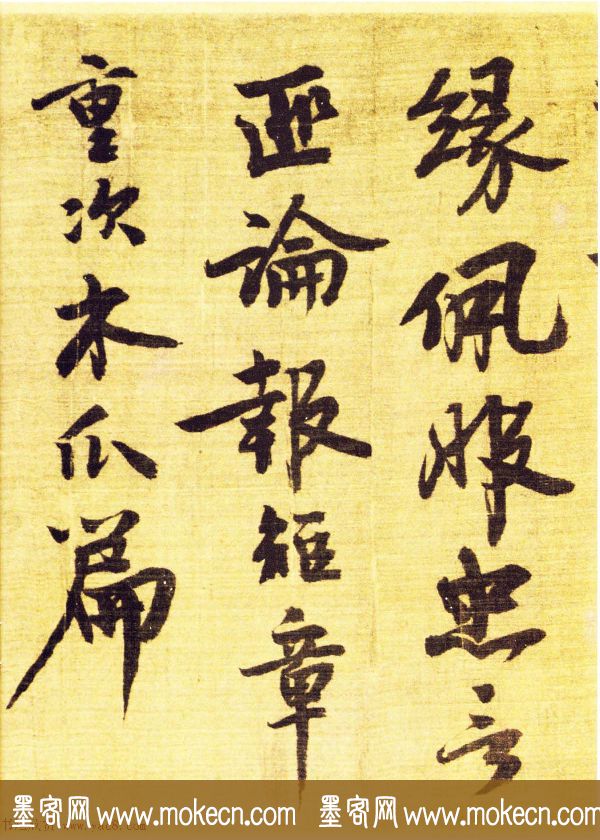 緣佩服忠言
匪論報短章
重次木瓜篇
墨客网 www.mokecn.com 墨客网 www.mokecn.com